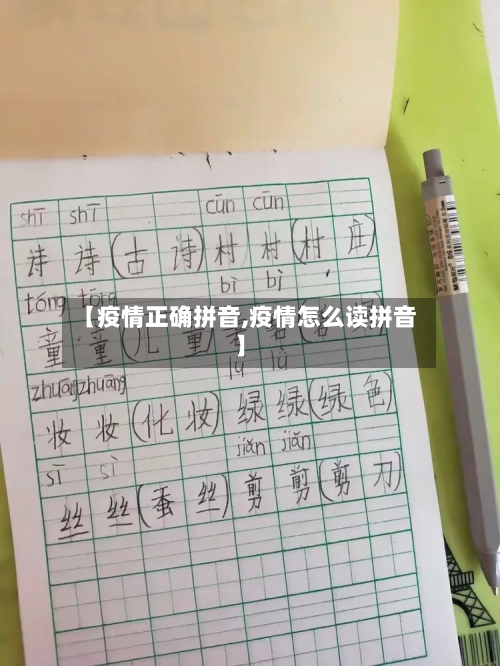 shī shī cūn cūn
诗 诗 (古 诗) 村 村 (村 庄)
tóng tóng bì bì
童 童 (儿 童)
【疫情正确拼音,疫情怎么读拼音
】
zhuāng zhuāng lǜ lǜ
妆 妆 (化 妆) 绿 绿 (绿 色)
sī sī jiǎn jiǎn
丝 丝 (蚕 丝) 剪 剪 (剪 刀)